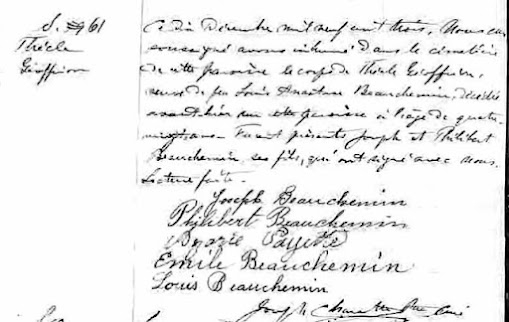 S. 61
Thècle
Geoffrion
Ce dix Décembre mil neuf cent trois, Nous curé
soussigné avons inhumé dans le cimetière
de cette paroisse le corps de Thècle Geoffrion,
veuve de feu Louis Anastase Beauchemin, décédée
avant hier en cette paroisse à l'âge de quatre
vingt ans. Furent présents Joseph et Philibert
Beauchemin, ses fils, qui ont signé avec nous.
Lecture faite.
Joseph Beauchemin
Philibert Beauchemin
Payette
Emile Beauchemin
Louis Beauchemin
Joseph